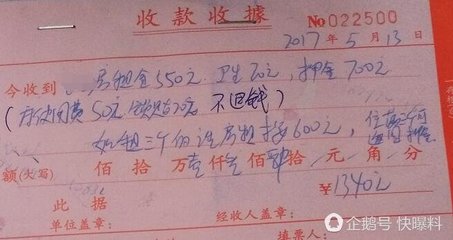 收款收據
No 022500
2017年5月13日
今收到 房租金550元 卫生20元，押金700元
(存使用费50元 20元 不退钱)
如租三个月 房租按600元，住 三个月
退回押金
额(大写) 佰拾万壹仟 佰肆拾/元/角/分
¥1340元
此据
单位盖章： 经收人盖章：
填票人：
企鹅号 快曝料